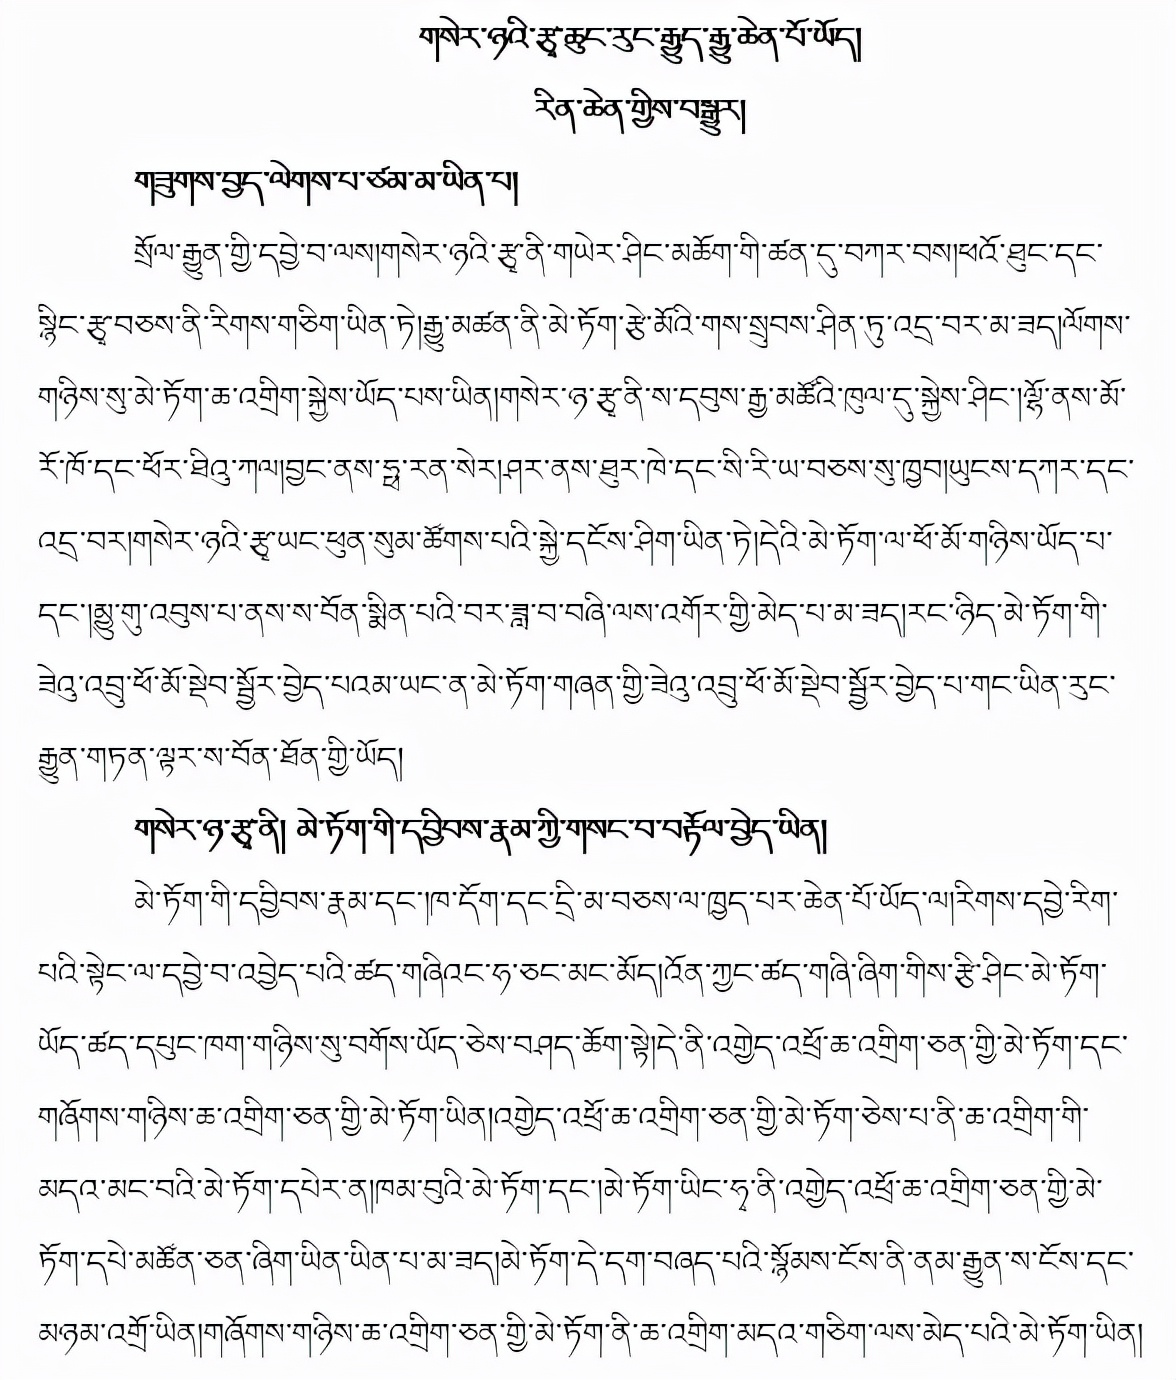 གསེར་ཉའི་རྩྭ་ཆུང་རུང་རྒྱུད་རྒྱུ་ཆེན་པོ་ཡོད།
རིན་ཆེན་གྱིས་བསྒྱུར།
གཟུགས་བྱད་ལེགས་པ་ཙམ་མ་ཡིན་པ།
སྲོལ་རྒྱུན་གྱི་དབྱེ་བ་ལས།གསེར་ཉའི་རྩྭ་ནི་གཡེར་ཤིང་མཆོག་གི་ཚན་དུ་བཀར་བས།ཕའོ་ཐུང་དང་
སྙིང་རྩྭ་བཅས་ནི་རིགས་གཅིག་ཡིན་ཏེ།རྒྱུ་མཚན་ནི་མེ་ཏོག་རྩེ་མོའི་གས་སྲུབས་ཤིན་ཏུ་འདྲ་བར་མ་ཟད།ལོགས་
གཉིས་སུ་མེ་ཏོག་ཆ་འགྲིག་སྐྱེས་ཡོད་པས་ཡིན།གསེར་ཉ་རྩྭ་ནི་ས་དབུས་རྒྱ་མཚོའི་ཁུལ་དུ་སྐྱེས་ཤིང་།ལྷོ་ནས་མོ་
རོ་ཁོ་དང་ཕོར་ཐིའུ་ཀལ།བྱང་ནས་ཧྥ་རན་སེར།ཤར་ནས་ཐུར་ཁེ་དང་སི་རི་ཡ་བཅས་སུ་ཁྱབ།ཡུངས་དཀར་དང་
འདྲ་བར།གསེར་ཉའི་རྩྭ་ཡང་ཕུན་སུམ་ཚོགས་པའི་སྐྱེ་དངོས་ཤིག་ཡིན་ཏེ།དེའི་མེ་ཏོག་ལ་ཕོ་མོ་གཉིས་ཡོད་པ་
དང་།མྱུ་གུ་འབུས་པ་ནས་ས་བོན་སྨིན་པའི་བར་ཟླ་བ་བཞི་ལས་འགོར་གྱི་མེད་པ་མ་ཟད།རང་ཉིད་མེ་ཏོག་གི་
ཟེའུ་འབྲུ་ཕོ་མོ་སྡེབ་སྦྱོར་བྱེད་པའམ་ཡང་ན་མེ་ཏོག་གཞན་གྱི་ཟེའུ་འབྲུ་ཕོ་མོ་སྡེབ་སྦྱོར་བྱེད་པ་གང་ཡིན་རུང་
རྒྱུན་གཏན་ལྟར་ས་བོན་ཐོན་གྱི་ཡོད།
གསེར་ཉ་རྩྭ་ནི། མེ་ཏོག་གི་དབྱིབས་རྣམ་ཀྱི་གསང་བ་བརྟོལ་བྱེད་ཡིན།
མེ་ཏོག་གི་དབྱིབས་རྣམ་དང་།ཁ་དོག་དང་དྲི་མ་བཅས་ལ་ཁྱད་པར་ཆེན་པོ་ཡོད་ལ།རིགས་དབྱེ་རིག་
པའི་སྟེང་ལ་དབྱེ་བ་འབྱེད་པའི་ཚད་གཞིའང་ཧ་ཅང་མང་མོད།འོན་ཀྱང་ཚད་གཞི་ཞིག་གིས་རྩི་ཤིང་མེ་ཏོག་
ཡོད་ཚད་དཔུང་ཁག་གཉིས་སུ་བགོས་ཡོད་ཅེས་བཤད་ཆོག་སྟེ།དེ་ནི་འགྱེད་འཕྲོ་ཆ་འགྲིག་ཅན་གྱི་མེ་ཏོག་དང་
གཞོགས་གཉིས་ཆ་འགྲིག་ཅན་གྱི་མེ་ཏོག་ཡིན།འགྱེད་འཕྲོ་ཆ་འགྲིག་ཅན་གྱི་མེ་ཏོག་ཅེས་པ་ནི་ཆ་འགྲིག་གི་
མདའ་མང་བའི་མེ་ཏོག་དཔེར་ན།ཁམ་བུའི་མེ་ཏོག་དང་།མེ་ཏོག་ཡིང་ཧྭ་ནི་འགྱེད་འཕྲོ་ཆ་འགྲིག་ཅན་གྱི་མེ་
ཏོག་དཔེ་མཚོན་ཅན་ཞིག་ཡིན་ཡིན་པ་མ་ཟད།མེ་ཏོག་དེ་དག་བཞད་པའི་སྙོམས་ངོས་ནི་ནམ་རྒྱུན་ས་ངོས་དང་
མཉམ་འགྲོ་ཡིན།གཞོགས་གཉིས་ཆ་འགྲིག་ཅན་གྱི་མེ་ཏོག་ནི་ཆ་འགྲིག་མདའ་གཅིག་ལས་མེད་པའི་མེ་ཏོག་ཡིན།